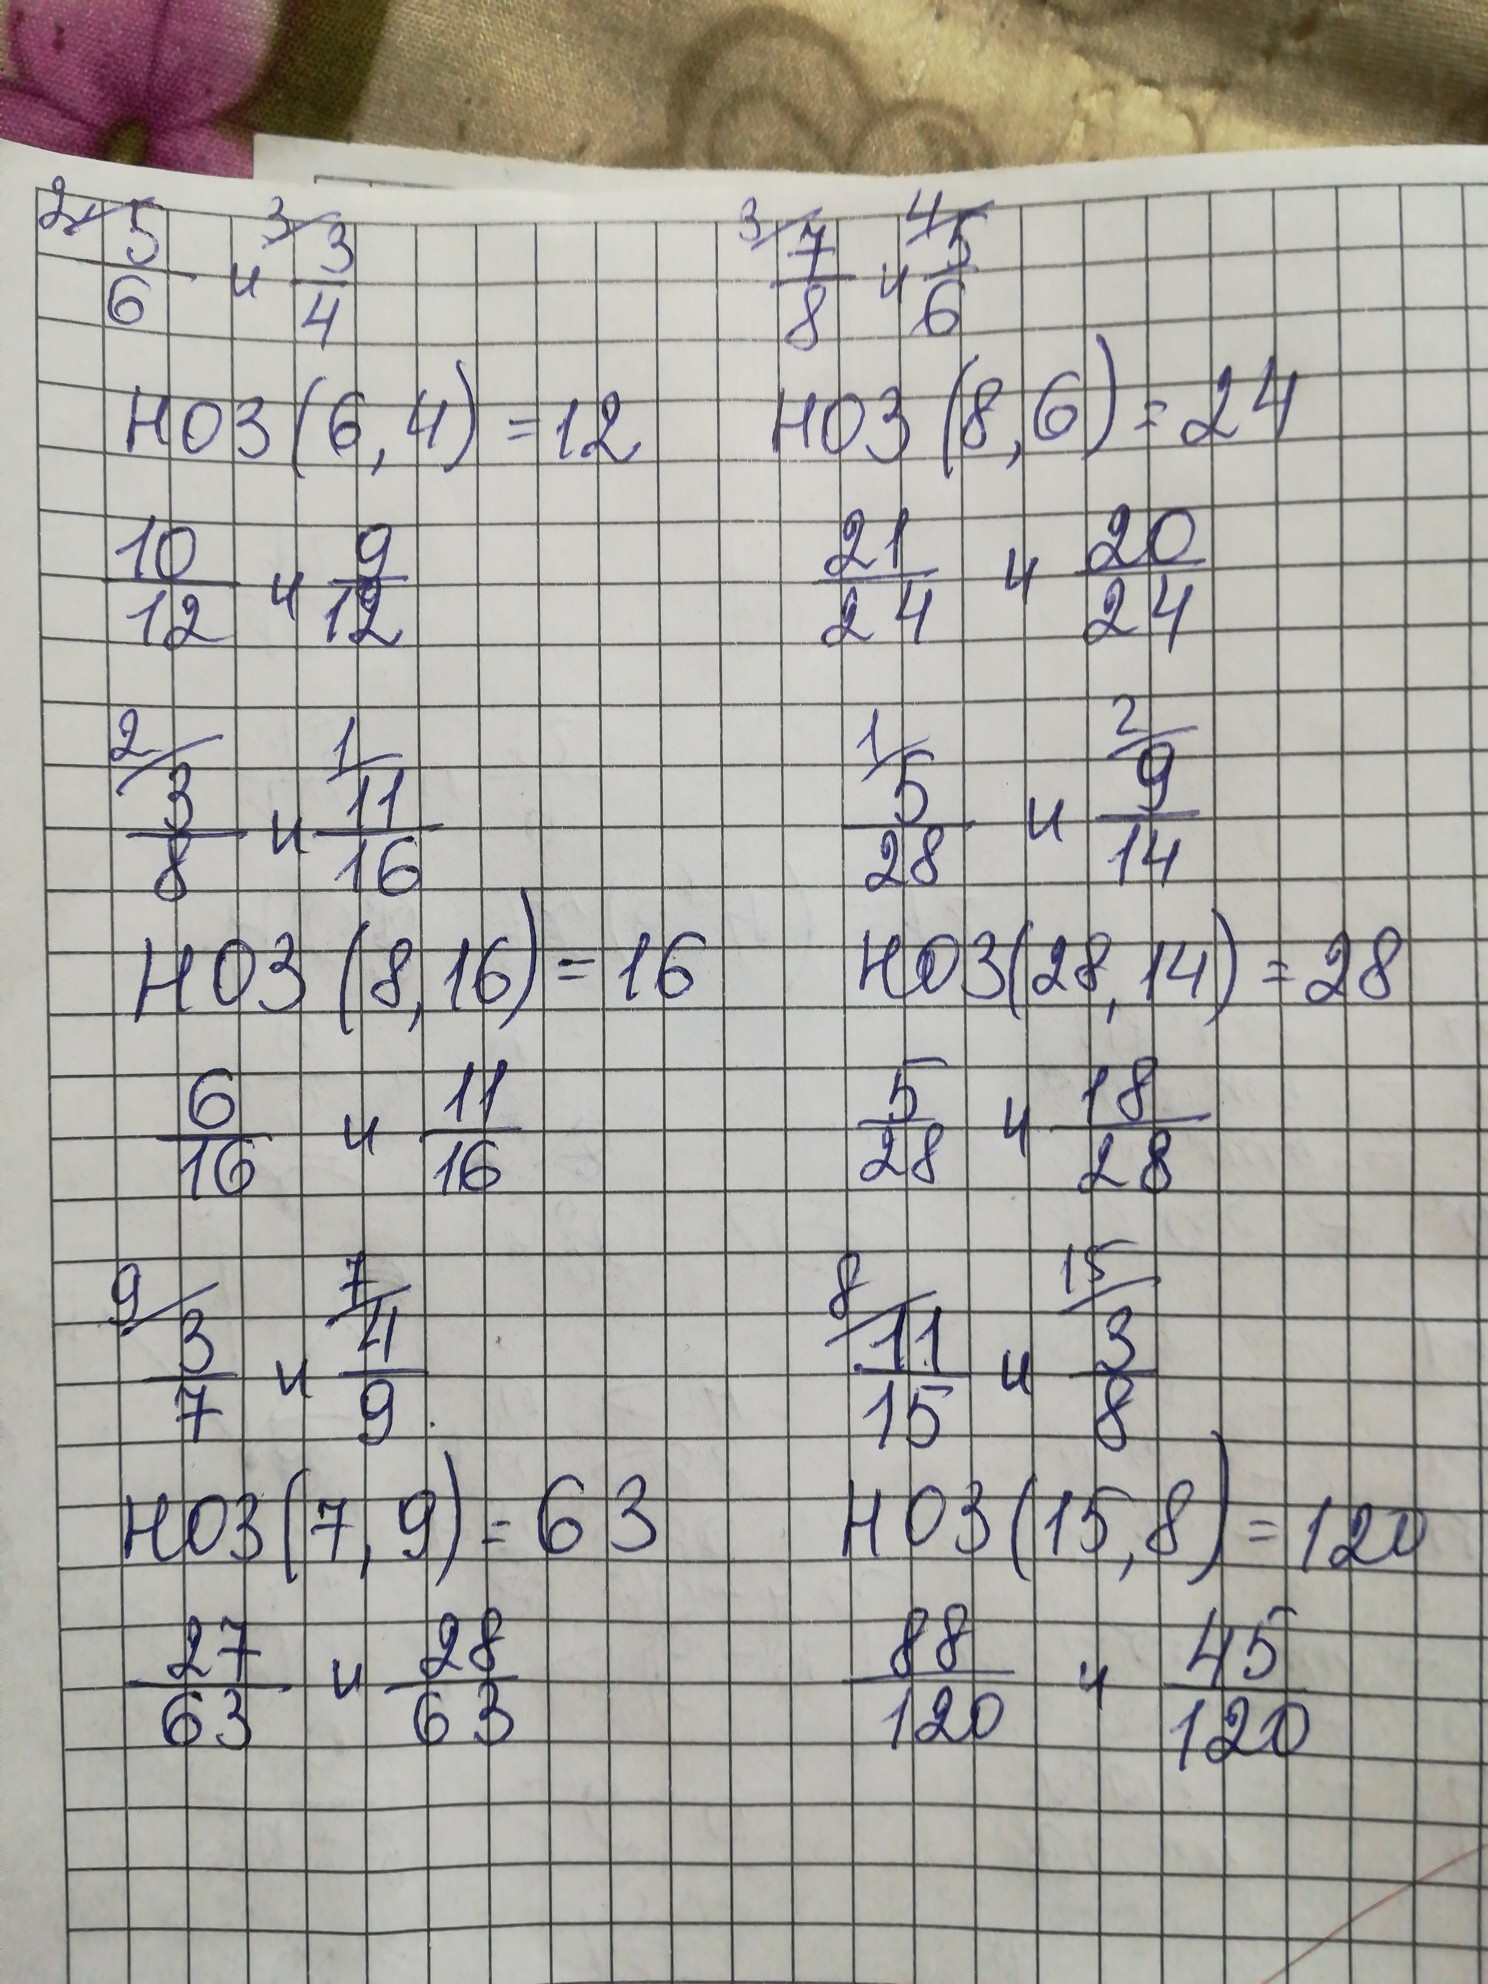 2/ 5/6 и 3/ 3/4
НОЗ(6,4)=12
10/12 и 9/12
2/ 3/8 и 1/ 11/16
НОЗ(8,16)=16
6/16 и 11/16
9/ 3/7 и 7/ 4/9.
НОЗ(7,9)=63
27/63 и 28/63
3/ 7/8 и 4/ 5/6
НОЗ(8,6)=24
21/24 и 20/24
1/ 5/28 и 2/ 9/14
НОЗ(28,14)=28
5/28 и 18/28
8/ 11/15 и 15/ 3/8
НОЗ(15,8)=120
88/120 и 45/120